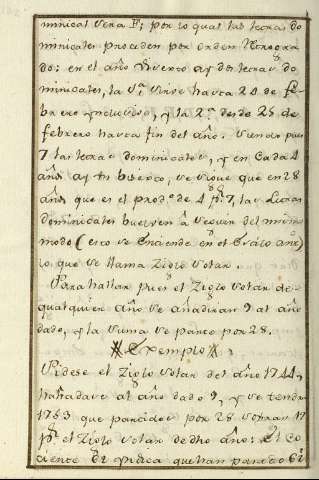 minical sera F; por lo qual las letras do
minicales proceden por orden Retrogra
do: en el año Bisexto ay dos letras do
minicales, la 1ª sirve hasta 24 de fe-
brero ynclusive, y la 2ª desde 25 de
febrero hasta fin del año. Siendo pues
7 las letras dominicales, y en cada 4
años ay un bisexto, se sigue que en 28
años que es el prodº de 4 pr 7, las Letras
dominicales buelven a seguir del mismo
modo (esto se entiende en el Estilo antº)
lo que se llama Ziclo Solar.
Para hallar pues el Ziclo Solar de
qualquier año se añadiran 9 al año
dado, y la suma se parte por 28.
Exemplo
Pidese el Ziclo Solar del año 1744,
añadase al año dado 9, y se tendra
1753 que partidos por 28 sobran 17
pr el Ziclo Solar de dho año: el co
ciente 62 yndica que han pasado 62